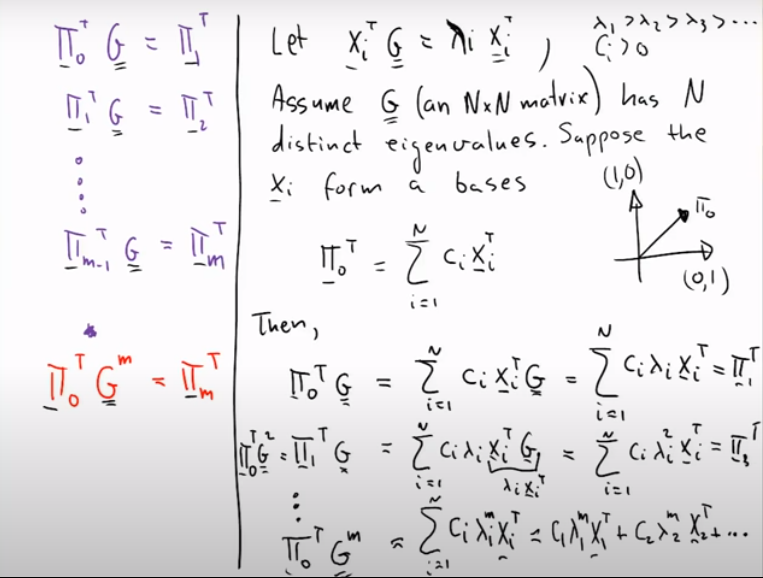 π₀ᵀ G = π₁ᵀ
π₁ᵀ G = π₂ᵀ
⋮
πₘ₋₁ᵀ G = πₘᵀ
π₀ᵀ Gᵐ = πₘᵀ
Let xᵢᵀ G = λᵢ xᵢᵀ , λ₁ > λ₂ > λ₃ > ...
Cᵢ > 0
Assume G (an N×N matrix) has N
distinct eigenvalues. Suppose the
xᵢ form a bases
(1,0)
π₀
(0,1)
π₀ᵀ = ∑ᵢ₌₁ᴺ cᵢ xᵢᵀ
Then,
π₀ᵀ G = ∑ᵢ₌₁ᴺ cᵢ xᵢᵀ G = ∑ᵢ₌₁ᴺ cᵢ λᵢ xᵢᵀ = π₁ᵀ
π₀ᵀ G² = π₁ᵀ G = ∑ᵢ₌₁ᴺ cᵢ λᵢ xᵢᵀ G = ∑ᵢ₌₁ᴺ cᵢ λᵢ² xᵢᵀ = π₃ᵀ
λᵢ xᵢᵀ
⋮
π₀ᵀ Gᵐ = ∑ᵢ₌₁ᴺ cᵢ λᵢᵐ xᵢᵀ = c₁ λ₁ᵐ x₁ᵀ + c₂ λ₂ᵐ x₂ᵀ + ...